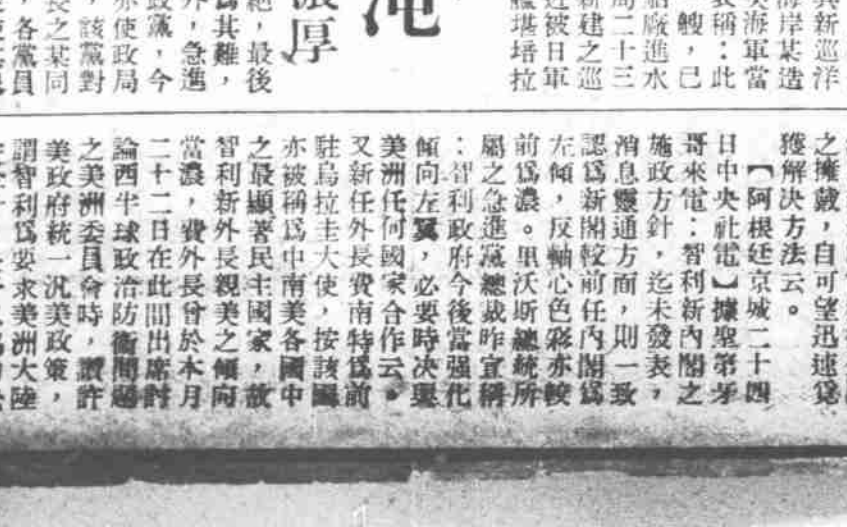 與新巡洋
海岸某造
海軍當
表稱：此
艘，已
船廠進水
局二十三
新建之巡
近被日軍
艦堪培拉
沌
濃厚
絕，最後
爲其難，
外，急進
政黨，今
亦使政局
，該黨對
長之某同
，各黨員
之擁戴，自可望迅速爲
獲解決方法云。
【阿根廷京城二十四
日中央社電】據聖第牙
哥來電：智利新內閣之
施政方針，迄未發表，
消息靈通方面，則一致
認爲新閣較前任內閣爲
左傾，反軸心色彩亦較
前爲濃。里沃斯總統所
屬之急進黨總裁昨宣稱
：智利政府今後當强化
傾向左翼，必要時决與
美洲任何國家合作云。
又新任外長費南特爲前
駐烏拉圭大使，按該國
亦被稱爲中南美各國中
之最顯著民主國家，故
智利新外長親美之傾向
當濃，費外長曾於本月
二十二日在此間出席討
論西半球政治防衞問題
之美洲委員會時，讚許
美政府統一汎美政策，
謂智利爲要求美洲大陸